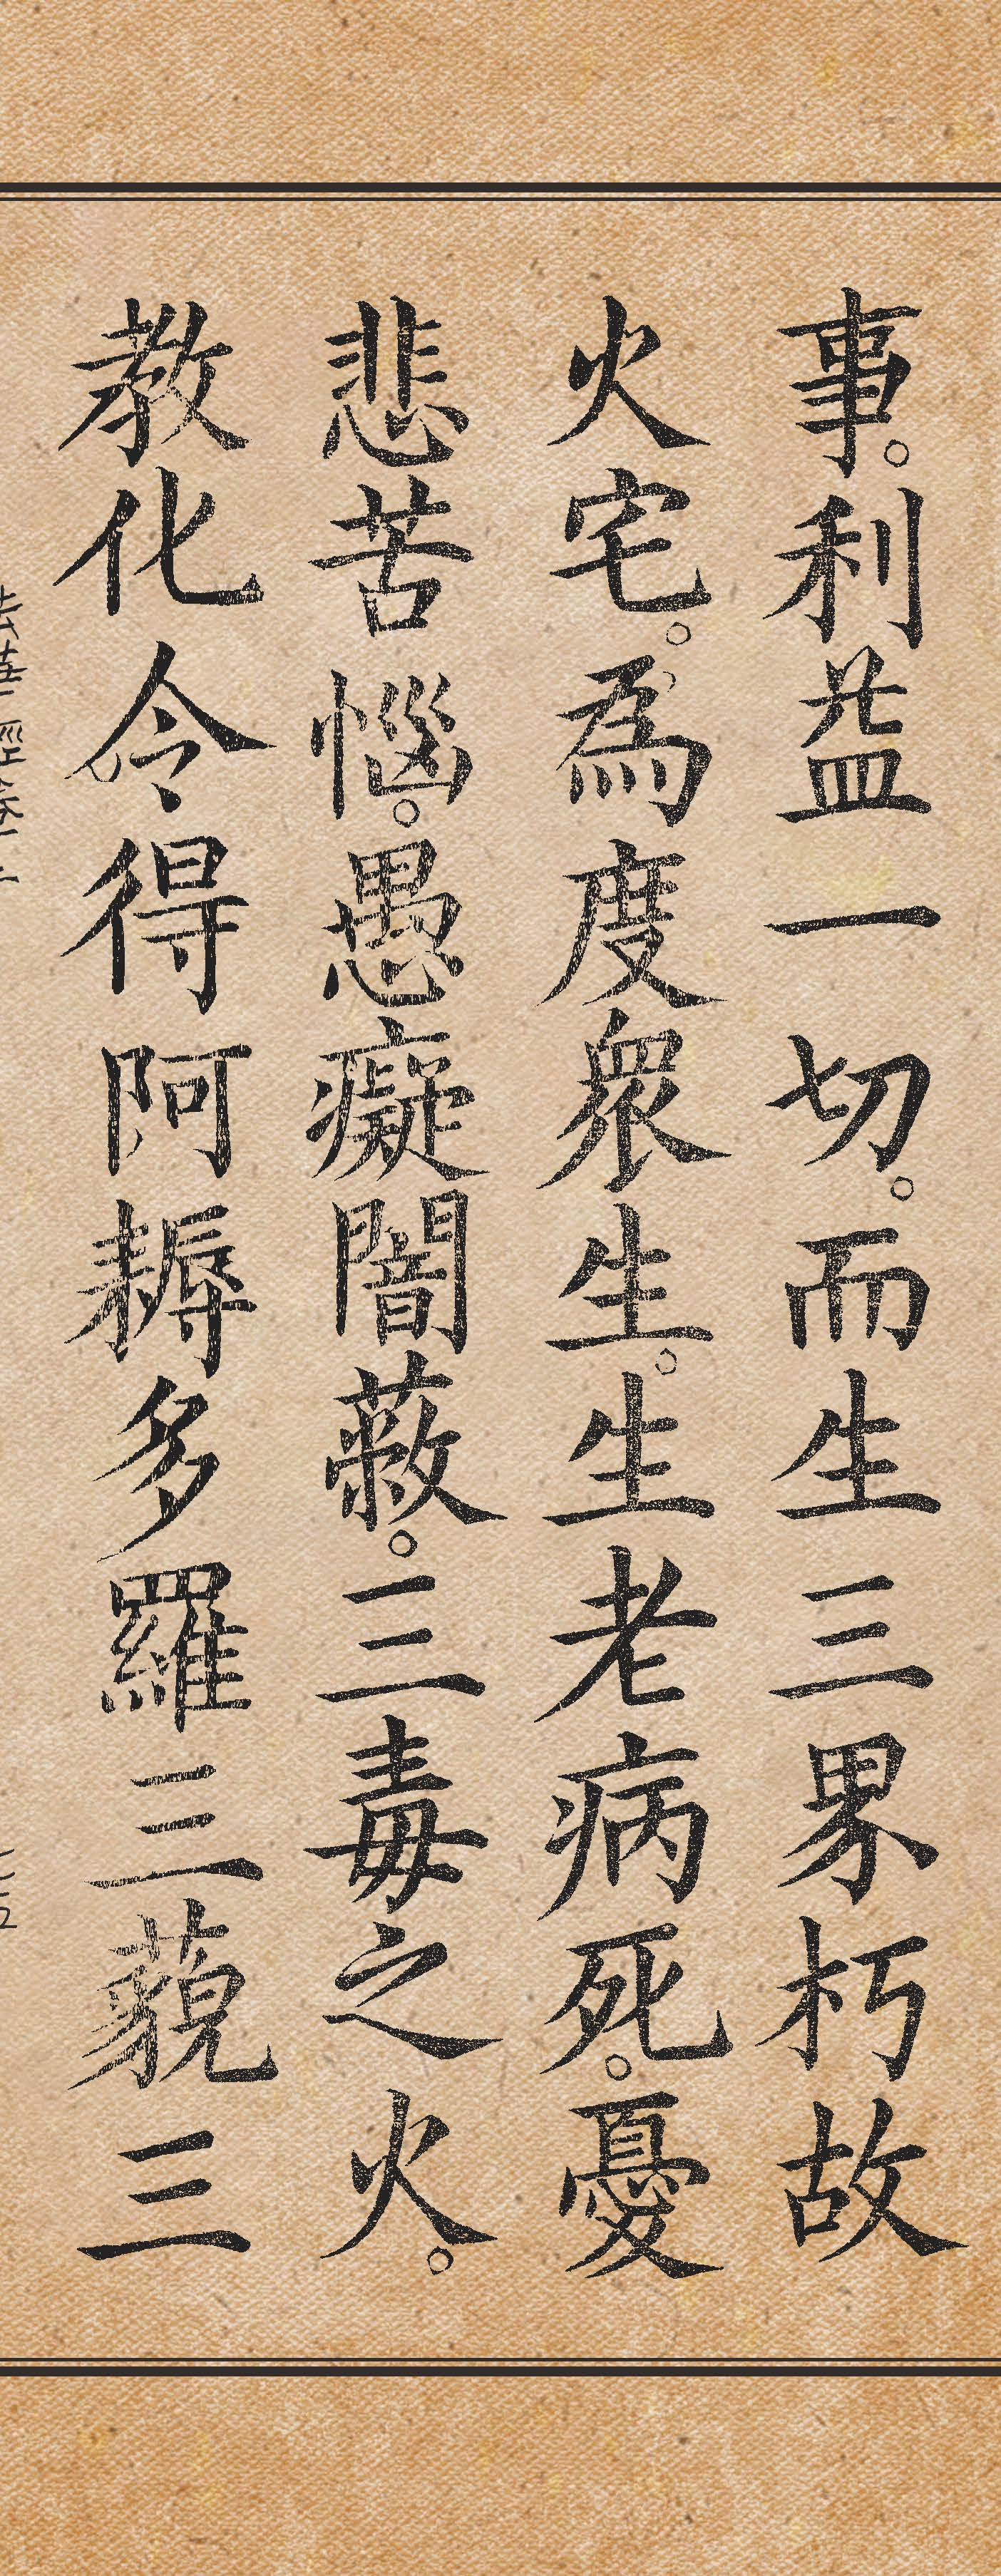 事。利益一切。而生三界朽故
火宅。為度眾生。生老病死。憂
悲苦惱。愚癡闇蔽。三毒之火。
教化令得阿耨多羅三藐三